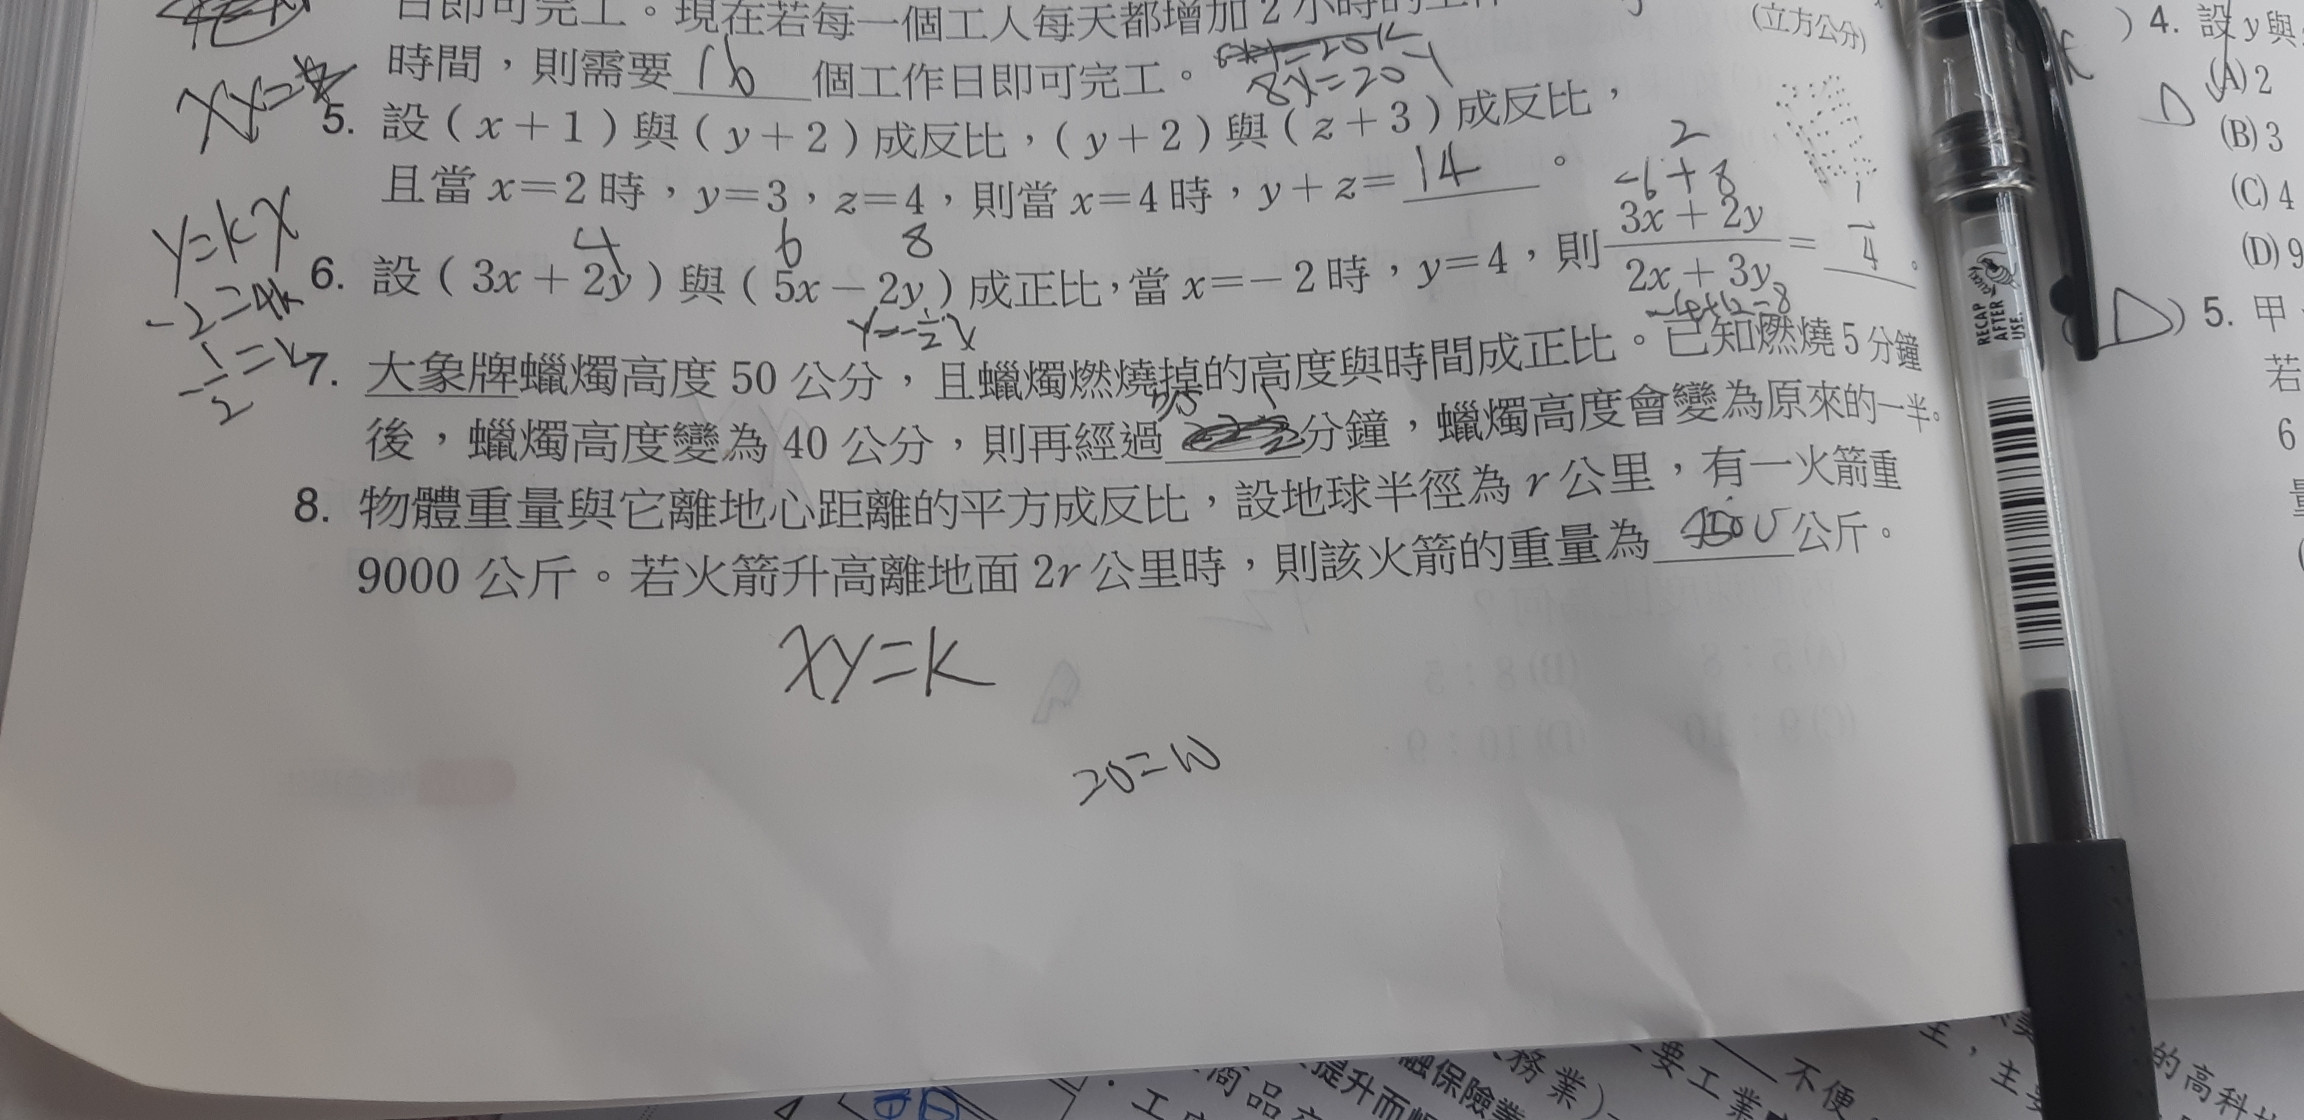 日即可完工。現在若每一個工人每天都增加2小時的工作
時間，則需要 16 個工作日即可完工。
8y=204
5. 設(x+1)與(y+2)成反比，(y+2)與(z+3)成反比，
且當x=2時，y=3，z=4，則當x=4時，y+z= 14 。
4 6 8
y=kx
-2=4k
-1/2=k
2
-6+8
6. 設(3x+2y)與(5x-2y)成正比，當x=-2時，y=4，則 3x+2y / 2x+3y = 1/4 。
-4+12=8
y=-1/2x
7. 大象牌蠟燭高度50公分，且蠟燭燃燒掉的高度與時間成正比。已知燃燒5分鐘
後，蠟燭高度變為40公分，則再經過 7.5 分鐘，蠟燭高度會變為原來的一半。
8. 物體重量與它離地心距離的平方成反比，設地球半徑為r公里，有一火箭重
9000公斤。若火箭升高離地面2r公里時，則該火箭的重量為 4500 公斤。
xy=k
20=10
(立方公分)
RECAP
AFTER
USE.
) 4. 設y與
(A) 2
D
(B) 3
(C) 4
(D) 9
D ) 5. 甲
若
6
量
商品
提升而
融保險業
務業)
要工業
不便
主，主
的高科技